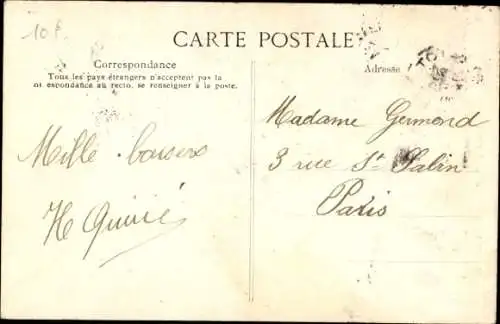 10 f.
CARTE POSTALE
Correspondance
Tous les pays étrangers n'acceptent pas la
correspondance au recto, se renseigner à la poste.
Adresse
Mille baisers
Madame Germond
3 rue St Sabin
Paris